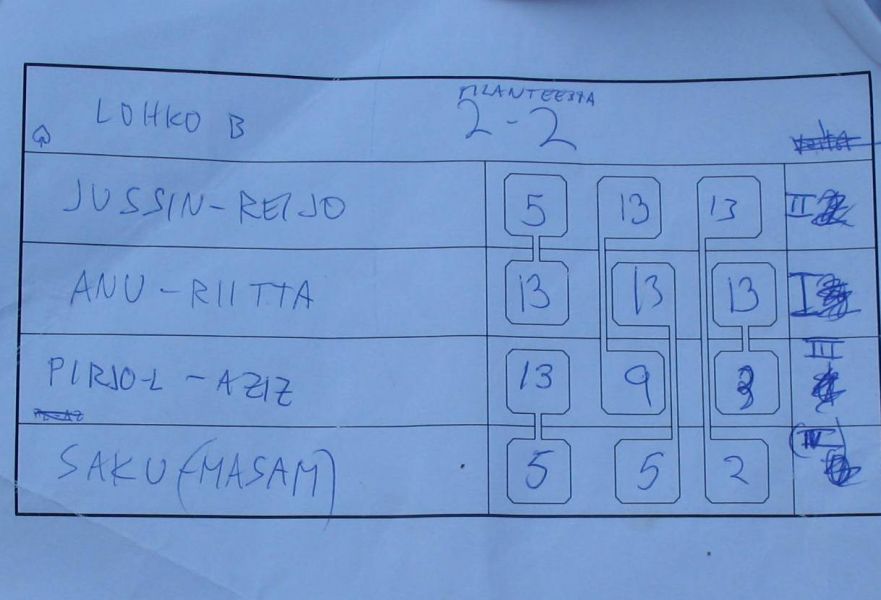 LOHKO B
TILANTEESTA
2-2
JUSSIN-REIJO 5 13 13 II
ANU-RIITTA 13 13 13 I
PIRJO-L-AZIZ 13 9 3 III
SAKU (MASAM) 5 5 2 (IV)